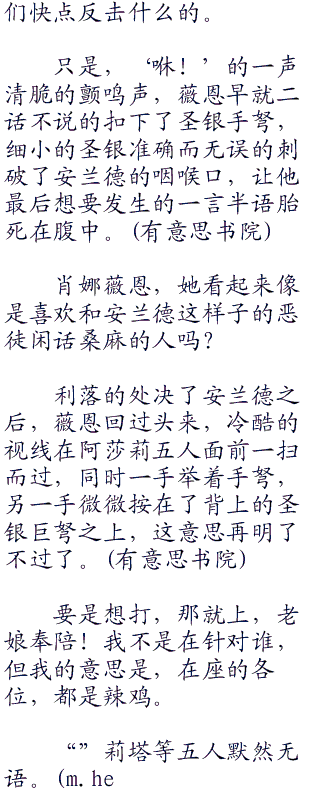 们快点反击什么的。
只是，‘咻！’的一声
清脆的颤鸣声，薇恩早就二
话不说的扣下了圣银手弩，
细小的圣银准确而无误的刺
破了安兰德的咽喉口，让他
最后想要发生的一言半语胎
死在腹中。(有意思书院)
肖娜薇恩，她看起来像
是喜欢和安兰德这样子的恶
徒闲话桑麻的人吗？
利落的处决了安兰德之
后，薇恩回过头来，冷酷的
视线在阿莎莉五人面前一扫
而过，同时一手举着手弩，
另一手微微按在了背上的圣
银巨弩之上，这意思再明了
不过了。(有意思书院)
要是想打，那就上，老
娘奉陪！我不是在针对谁，
但我的意思是，在座的各
位，都是辣鸡。
“”莉塔等五人默然无
语。(m.he